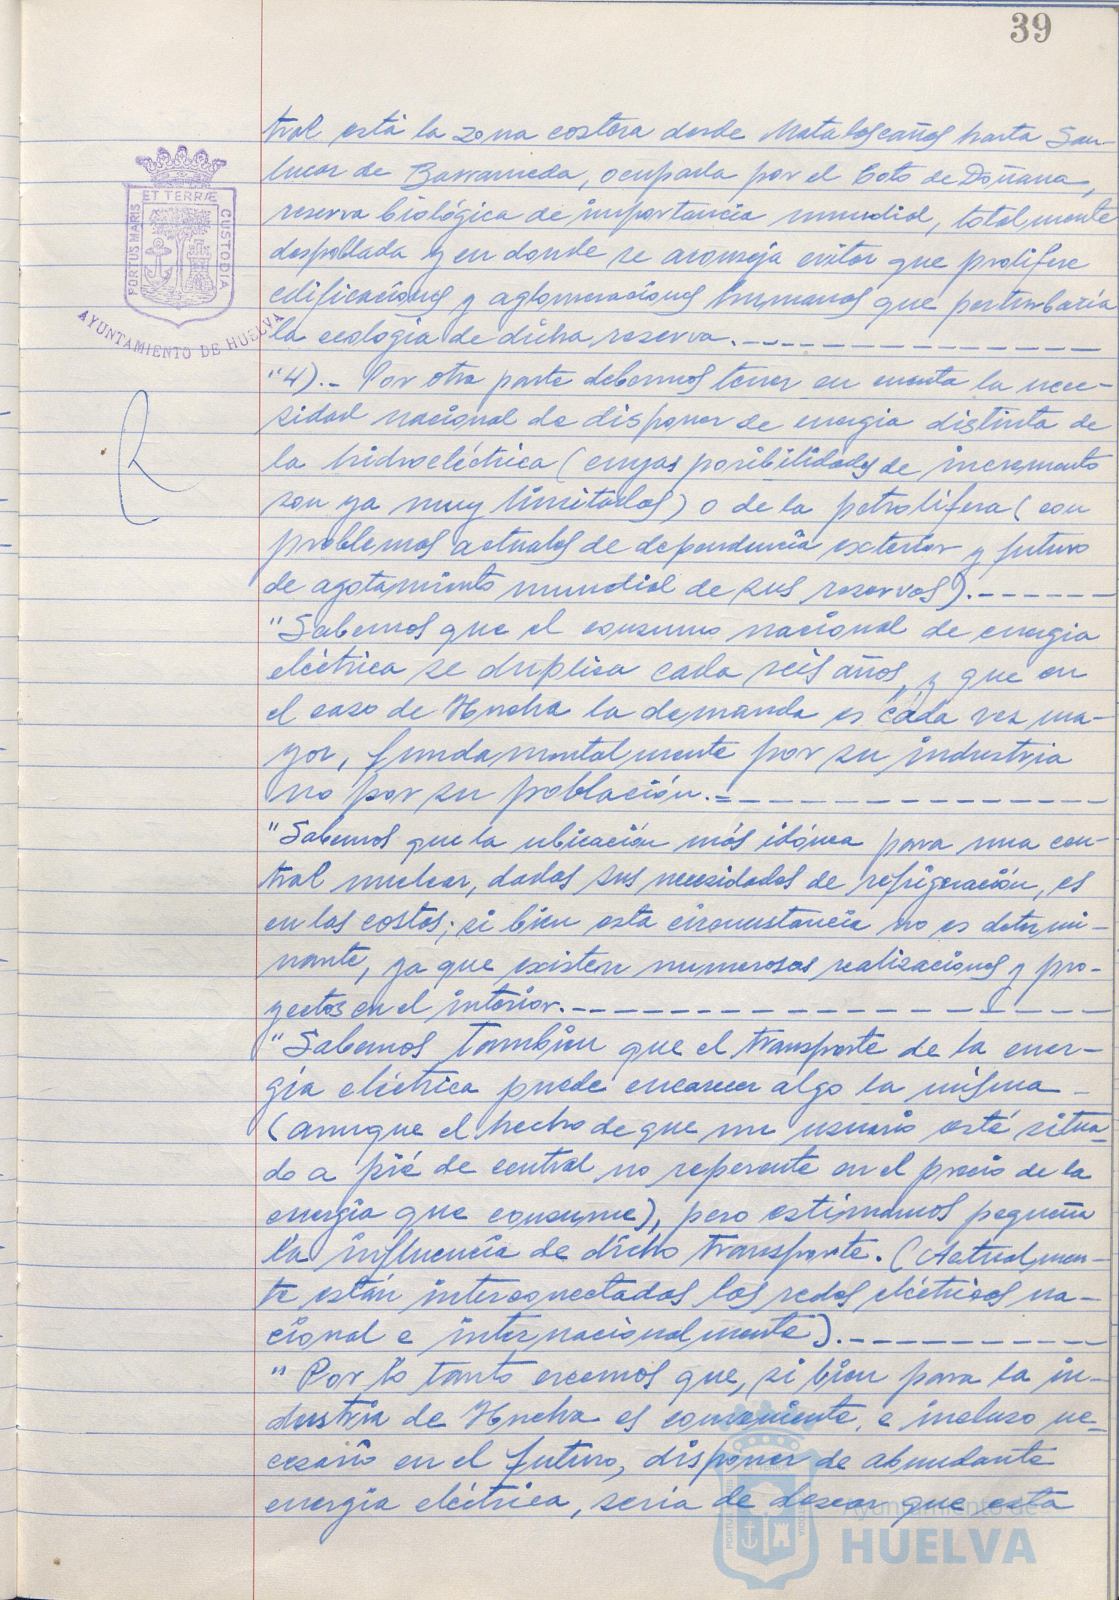 39
tral está la zona costera desde Matalascañas hasta San-
lucar de Barrameda, ocupada por el Coto de Doñana,
reserva biológica de importancia mundial, totalmente
despoblada y en donde se aconseja evitar que prolifere
edificaciones y aglomeraciones humanas que perturbaría
la ecología de dicha reserva.-------------
"4).- Por otra parte debemos tener en cuenta la nece-
sidad nacional de disponer de energia distinta de
la hidroeléctrica (cuyas posibilidades de incremento
son ya muy limitadas) o de la petrolífera (con
problemas actuales de dependencia exterior y futuro
de agotamiento mundial de sus reservas).------
"Sabemos que el consumo nacional de energia
eléctrica se duplica cada seis años, y que en
el caso de Huelva la demanda es cada vez ma-
yor, fundamentalmente por su industria
no por su población.-------------
"Sabemos que la ubicación más idónea para una cen-
tral nuclear, dadas sus necesidades de refrigeración, es
en las costas; si bien esta circunstancia no es determi-
nante, ya que existen numerosas realizaciones y pro-
yectos en el interior.-----------------
"Sabemos tambien que el transporte de la ener-
gía eléctrica puede encarecer algo la misma -
(aunque el hecho de que un usuario esté situa-
do a pié de central no repercute en el precio de la
energía que consume), pero estimamos pequeña
la influencia de dicho transporte. (Actualmen-
te están interconectadas las redes eléctricas na-
cional e internacionalmente).---------
"Por lo tanto creemos que, si bien para la in-
dustria de Huelva es conveniente, e incluso ne-
cesario en el futuro, disponer de abundante
energía eléctrica, seria de desear que esta
ET TERRÆ
PORTUS MARIS
CUSTODIA
AYUNTAMIENTO DE HUELVA
Ayuntamiento de
HUELVA